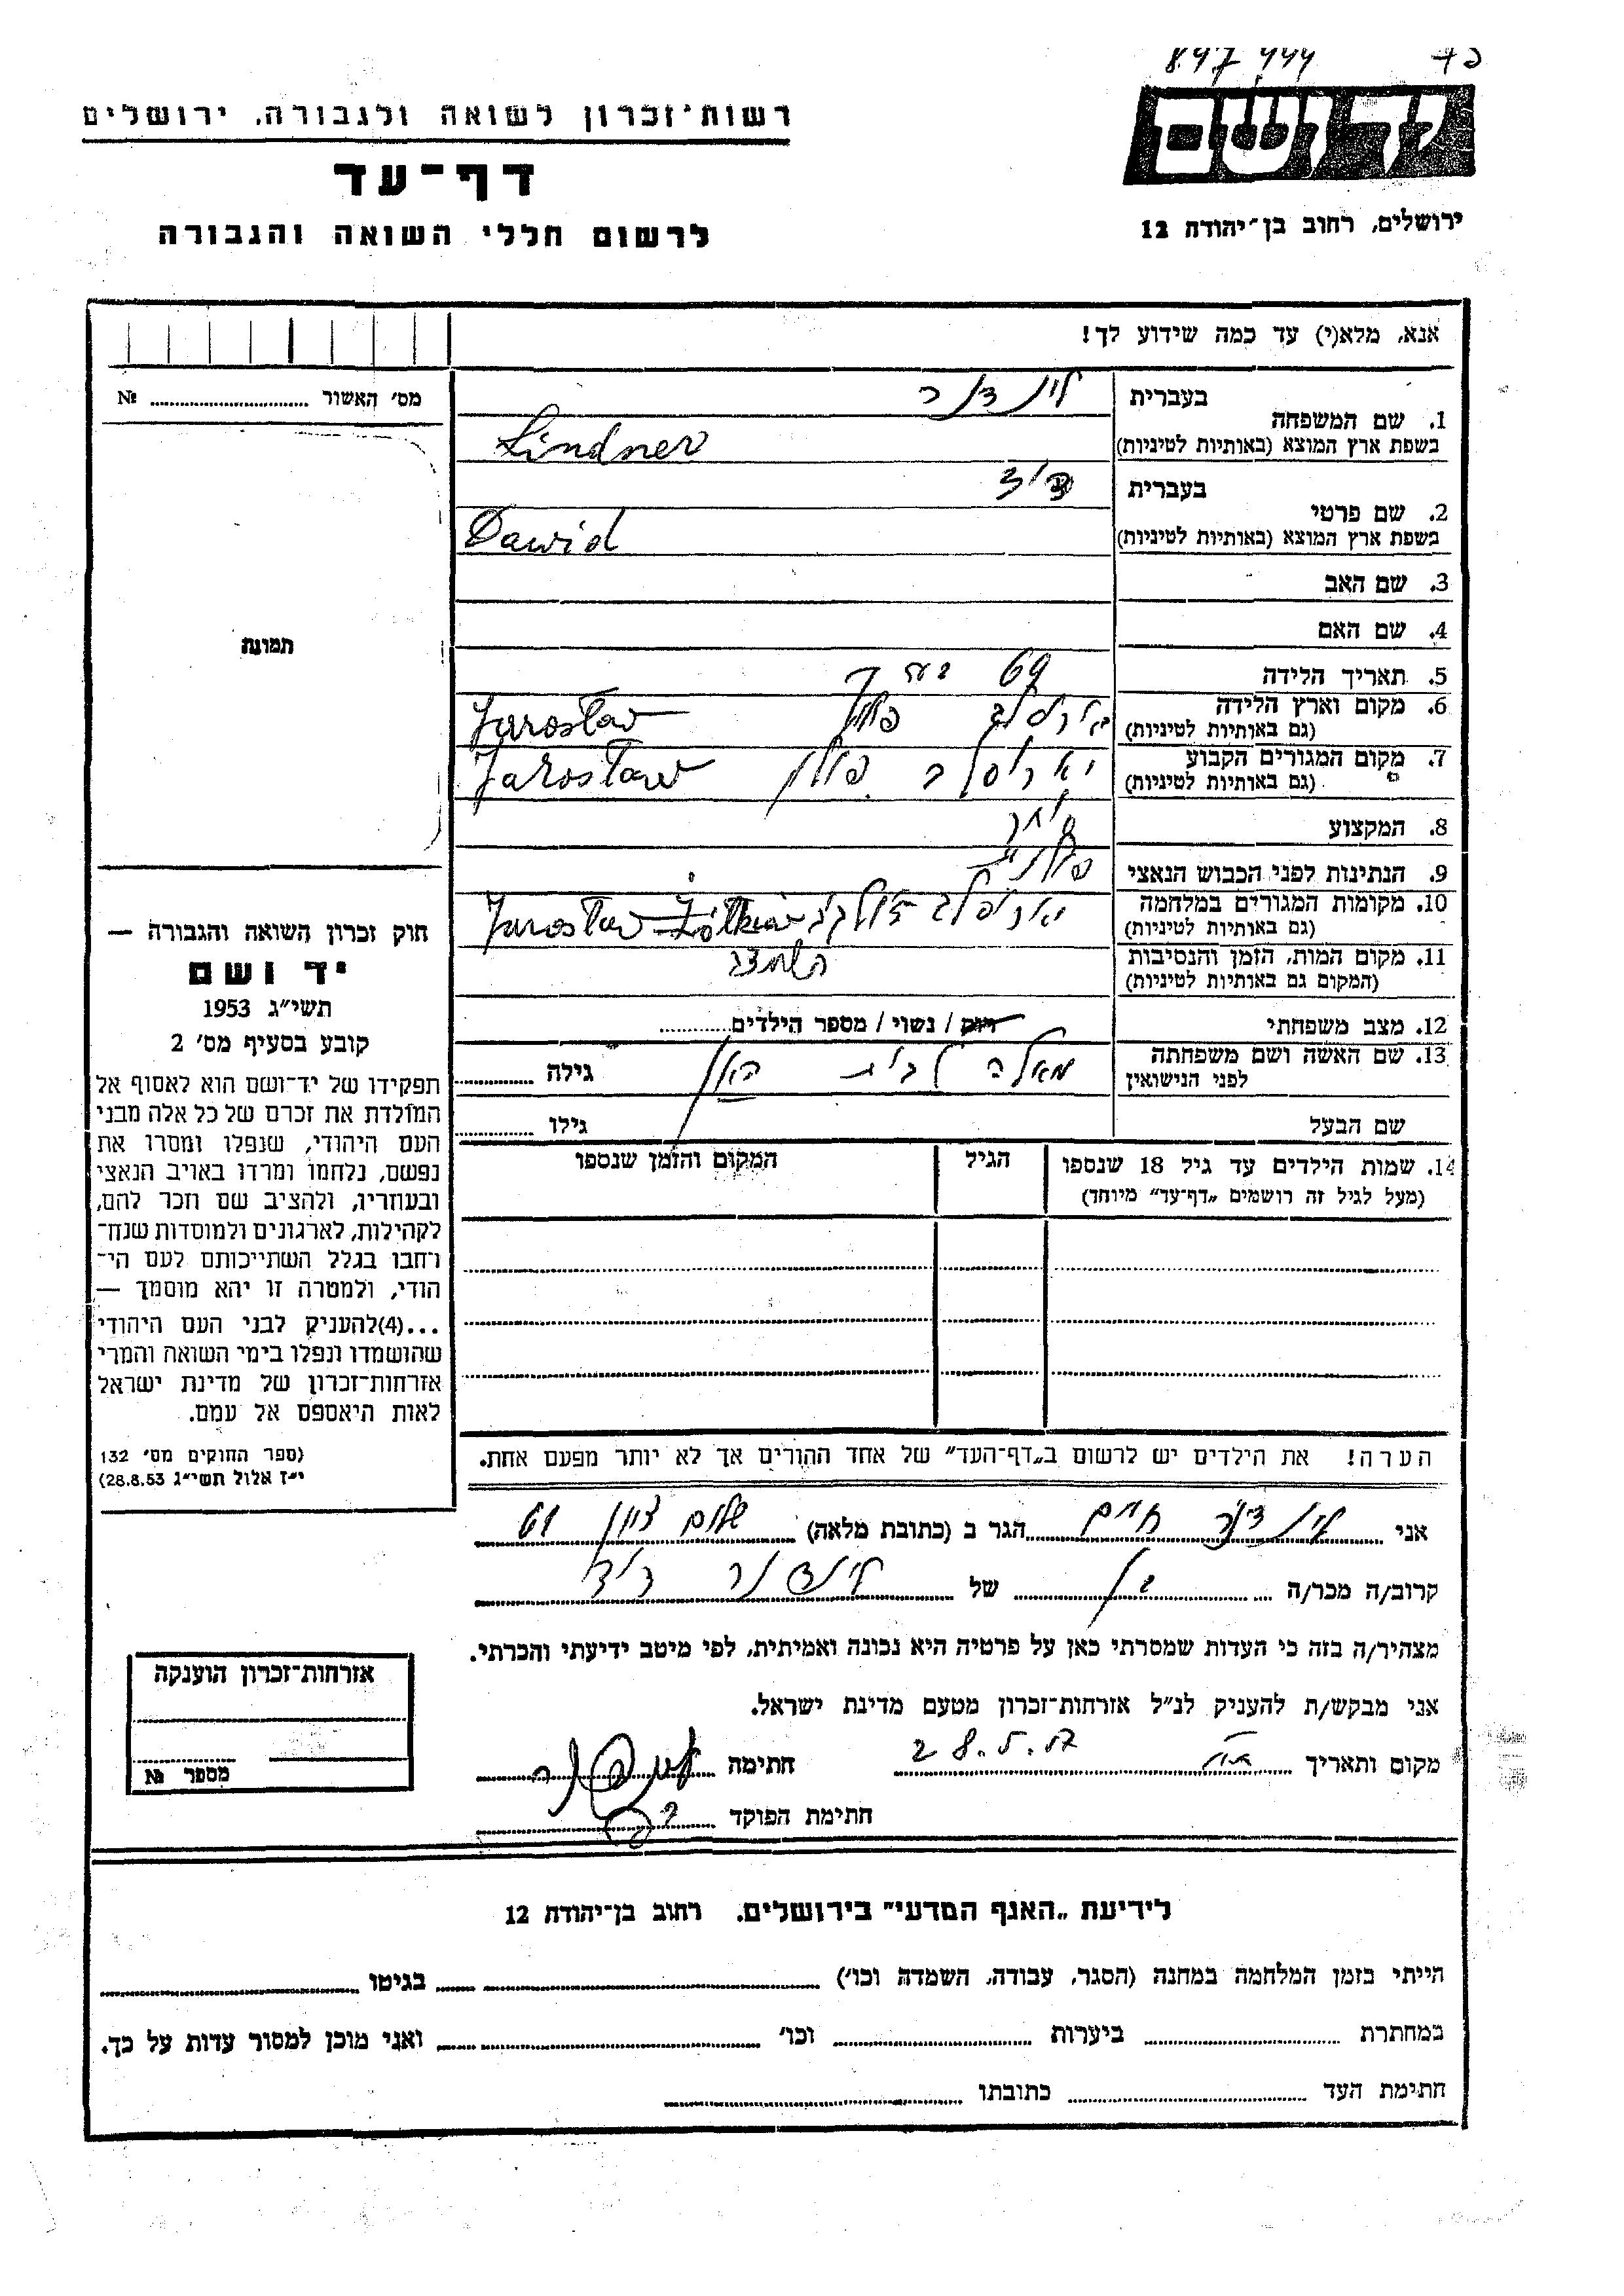 897 444
רשות־זכרון לשואה ולגבורה, ירושלים
ד ושם
דף־עד
לרשום חללי השואה והגבורה
ירושלים, רחוב בן־יהודה 12
אנא, מלא(י) עד כמה שידוע לך!
מס׳ האשור ........ №
1. שם המשפחה
בעברית לינדנר
בשפת ארץ המוצא (באותיות לטיניות) Lindner
2. שם פרטי
בעברית דויד
בשפת ארץ המוצא (באותיות לטיניות) Dawid
3. שם האב
4. שם האם
5. תאריך הלידה 69
6. מקום וארץ הלידה פולין
(גם באותיות לטיניות) Jaroslaw
7. מקום המגורים הקבוע יארוסלב פולין
(גם באותיות לטיניות) Jaroslaw
8. המקצוע סוחר
9. הנתינות לפני הכבוש הנאצי פולנית
10. מקומות המגורים במלחמה
(גם באותיות לטיניות) Jaroslaw
11. מקום המות, הזמן והנסיבות
(המקום גם באותיות לטיניות)
12. מצב משפחתי רווק / נשוי / מספר הילדים........
13. שם האשה ושם משפחתה
לפני הנישואין לבית גילה ........
שם הבעל גילו ........
14. שמות הילדים עד גיל 18 שנספו
(מעל לגיל זה רושמים „דף־עד״ מיוחד)
הגיל
המקום והזמן שנספו
הערה! את הילדים יש לרשום ב„דף־העד״ של אחד ההורים אך לא יותר מפעם אחת.
תמונה
חוק זכרון השואה והגבורה —
יד ושם
תשי״ג 1953
קובע בסעיף מס׳ 2
תפקידו של יד־ושם הוא לאסוף אל
המולדת את זכרם של כל אלה מבני
העם היהודי, שנפלו ומסרו את
נפשם, נלחמו ומרדו באויב הנאצי
ובעוזריו, ולהציב שם וזכר להם,
לקהילות, לארגונים ולמוסדות שנח־
רבו בגלל השתייכותם לעם הי־
הודי, ולמטרה זו יהא מוסמך —
...(4)להעניק לבני העם היהודי
שהושמדו ונפלו בימי השואה והמרי
אזרחות־זכרון של מדינת ישראל
לאות היאספם אל עמם.
(ספר החוקים מס׳ 132
י״ז אלול תשי״ג 28.8.53)
אני לינדנר חיים הגר ב (כתובת מלאה)
קרוב/ה מכר/ה של לינדנר דויד
מצהיר/ה בזה כי העדות שמסרתי כאן על פרטיה היא נכונה ואמיתית, לפי מיטב ידיעתי והכרתי.
אני מבקש/ת להעניק לנ״ל אזרחות־זכרון מטעם מדינת ישראל.
מקום ותאריך חתימה
חתימת הפוקד
אזרחות־זכרון הוענקה
מספר №
לידיעת „האגף המדעי״ בירושלים, רחוב בן־יהודה 12
הייתי בזמן המלחמה במחנה (הסגר, עבודה, השמדה וכו׳) בגיטו
במחתרת ביערות וכו׳ ואני מוכן למסור עדות על כך.
חתימת העד כתובתו